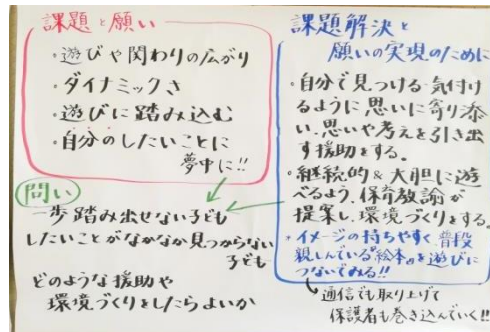 課題と願い
・遊びや関わりの広がり
・ダイナミックさ
・遊びに踏み込む
・自分のしたいことに
夢中に!!
問い
一歩踏み出せない子ども
したいことがなかなか見つからない
子ども
どのような援助や
環境づくりをしたらよいか
課題解決と
願いの実現のために
・自分で見つける・気付け
るように思いに寄り添
い、思いや考えを引き出
す援助をする。
・継続的&大胆に遊
べるよう、保育教諭が
提案し、環境づくりをする。
・イメージの持ちやすく普段
親しんでいる"絵本"を遊びに
つないでみる!!
通信でも取り上げて
保護者も巻き込んでいく!!